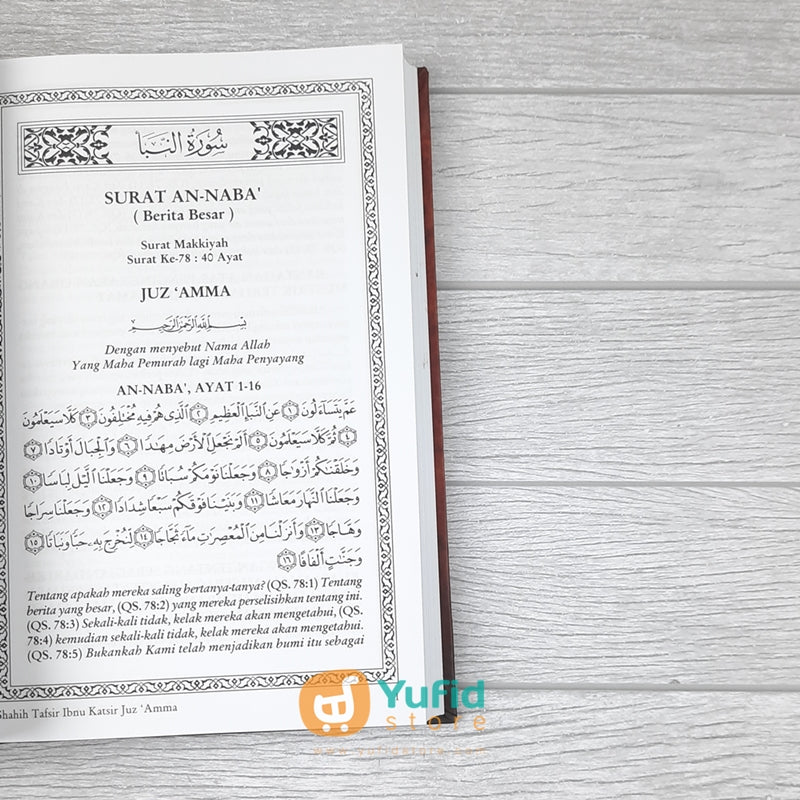 سُورَةُ النَّبَأ
SURAT AN-NABA'
( Berita Besar )
Surat Makkiyah
Surat Ke-78 : 40 Ayat
JUZ ‘AMMA
بِسْمِ اللَّهِ الرَّحْمَنِ الرَّحِيمِ
Dengan menyebut Nama Allah
Yang Maha Pemurah lagi Maha Penyayang
AN-NABA', AYAT 1-16
عَمَّ يَتَسَاءَلُونَ ١ عَنِ النَّبَإِ الْعَظِيمِ ٢ الَّذِي هُمْ فِيهِ مُخْتَلِفُونَ ٣ كَلَّا سَيَعْلَمُونَ
٤ ثُمَّ كَلَّا سَيَعْلَمُونَ ٥ أَلَمْ نَجْعَلِ الْأَرْضَ مِهَادًا ٦ وَالْجِبَالَ أَوْتَادًا ٧
وَخَلَقْنَاكُمْ أَزْوَاجًا ٨ وَجَعَلْنَا نَوْمَكُمْ سُبَاتًا ٩ وَجَعَلْنَا اللَّيْلَ لِبَاسًا ١٠
وَجَعَلْنَا النَّهَارَ مَعَاشًا ١١ وَبَنَيْنَا فَوْقَكُمْ سَبْعًا شِدَادًا ١٢ وَجَعَلْنَا سِرَاجًا
وَهَّاجًا ١٣ وَأَنْزَلْنَا مِنَ الْمُعْصِرَاتِ مَاءً ثَجَّاجًا ١٤ لِنُخْرِجَ بِهِ حَبًّا وَنَبَاتًا ١٥
وَجَنَّاتٍ أَلْفَافًا ١٦
Tentang apakah mereka saling bertanya-tanya? (QS. 78:1) Tentang
berita yang besar, (QS. 78:2) yang mereka perselisihkan tentang ini.
(QS. 78:3) Sekali-kali tidak, kelak mereka akan mengetahui, (QS.
78:4) kemudian sekali-kali tidak, kelak mereka akan mengetahui.
(QS. 78:5) Bukankah Kami telah menjadikan bumi itu sebagai
Shahih Tafsir Ibnu Katsir Juz ‘Amma
Yufid
store
www.yufidstore.com